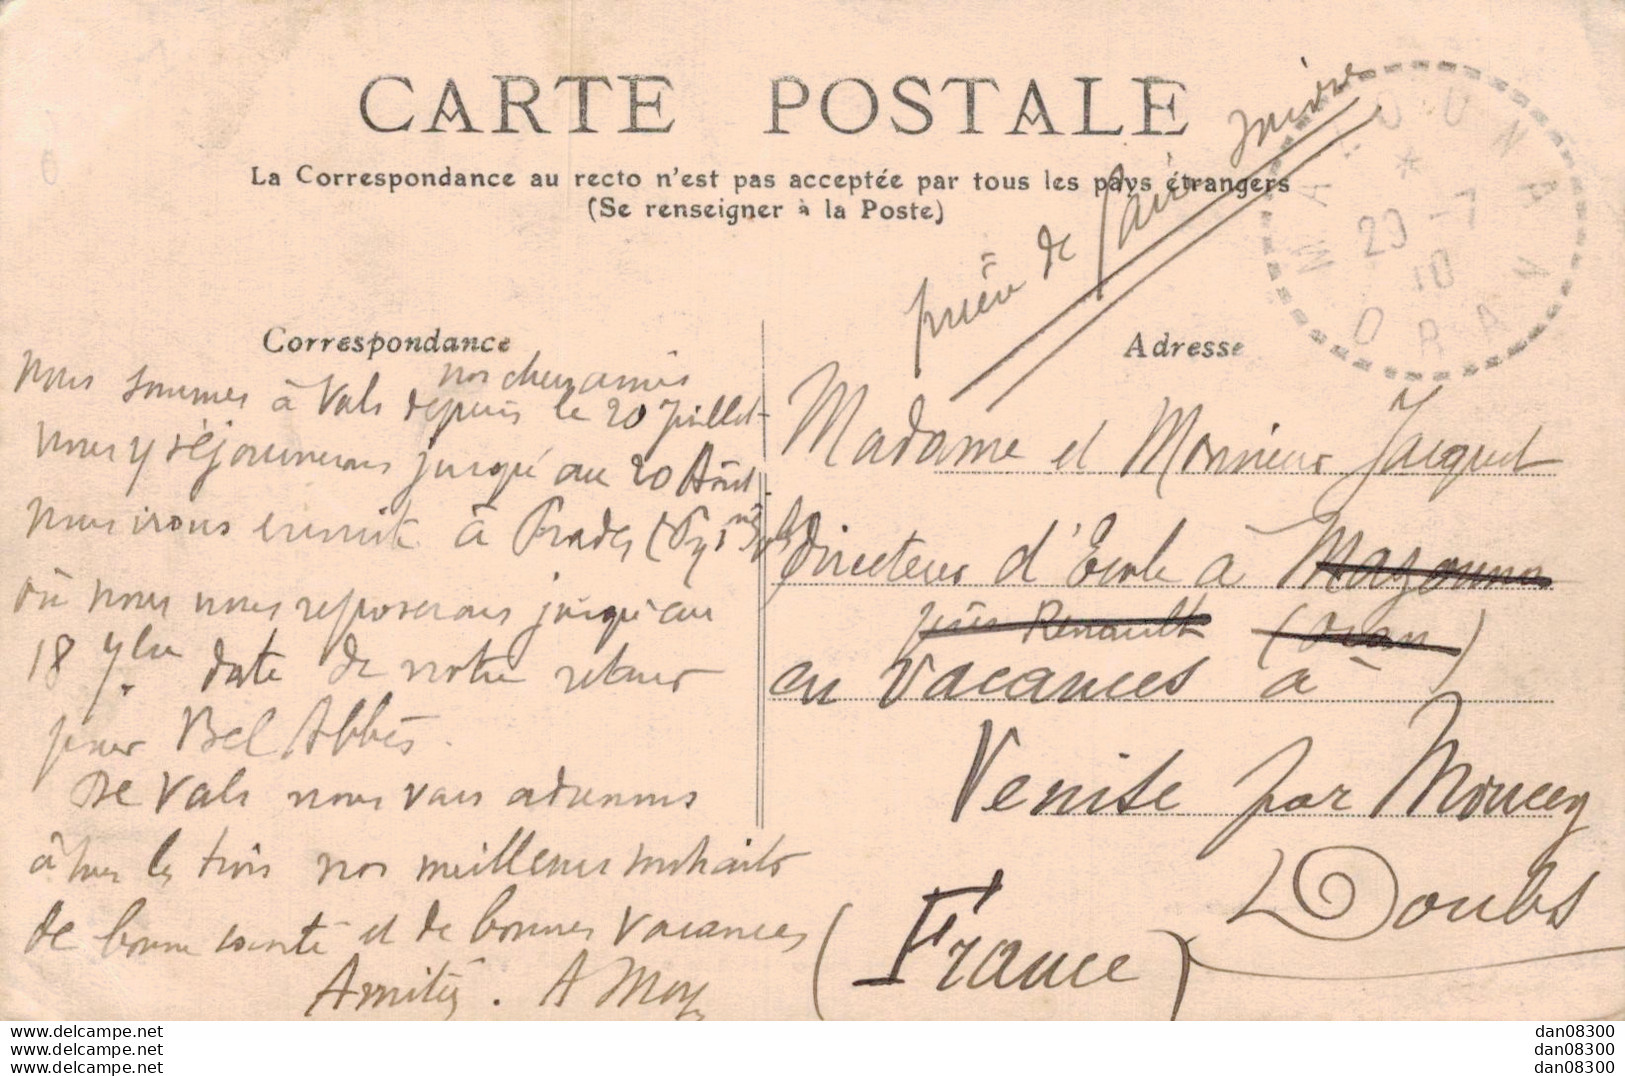 CARTE POSTALE
La Correspondance au recto n'est pas acceptée par tous les pays étrangers
(Se renseigner à la Poste)
prière de faire suivre
MA OUNA
29 -7
10
ORAN
Correspondance
nos chers amis
Nous sommes à Vals depuis le 20 Juillet
nous y séjournerons jusqu'au 20 Août.
nous irons ensuite à Prades
où nous nous reposerons jusqu'au
18 date de notre retour
pour Bel Abbès.
De Vals nous vous adressons
à tous les trois nos meilleurs souhaits
de bonne santé et de bonnes vacances
Amitiés. A
Adresse
Madame et Monsieur Jacquet
Directeur d'Ecole à Mazouna
près Renault (Oran)
en vacances à
Venise par Moncey
Doubs
(France)
www.delcampe.net
www.delcampe.net
www.delcampe.net
dan08300
dan08300
dan08300